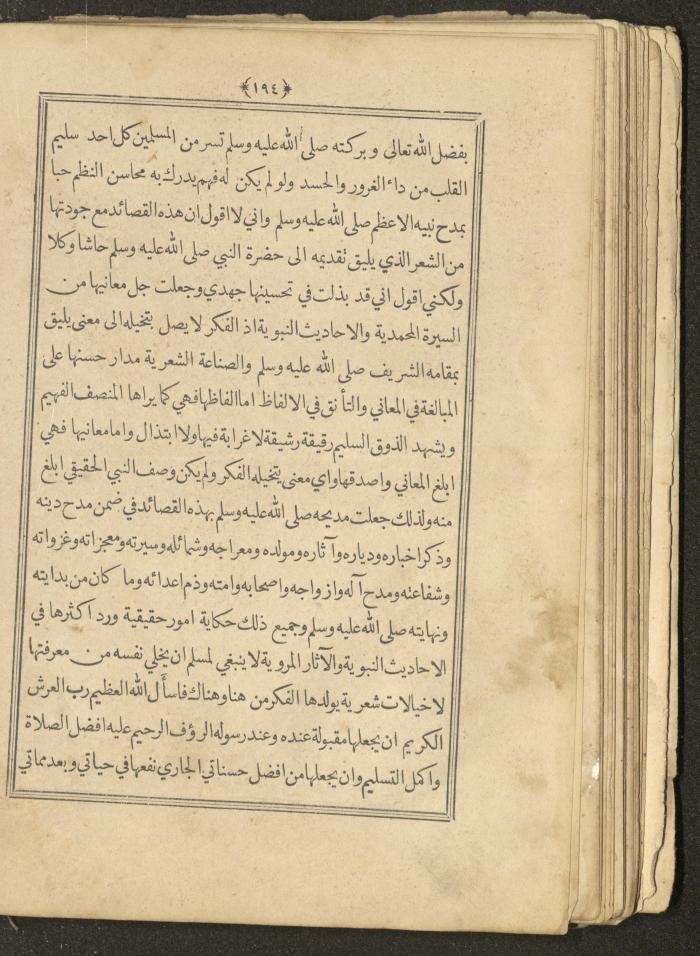 ﴿١٩٤﴾
بفضل الله تعالى وبركته صلى الله عليه وسلم تسر من المسلمين كل احد سليم
القلب من داء الغرور والحسد ولو لم يكن له فهم يدرك به محاسن النظم حبا
بمدح نبيه الاعظم صلى الله عليه وسلم واني لا اقول ان هذه القصائد مع جودتها
من الشعر الذي يليق تقديمه الى حضرة النبي صلى الله عليه وسلم حاشا وكلا
ولكني اقول اني قد بذلت في تحسينها جهدي وجعلت جل معانيها من
السيرة المحمدية والاحاديث النبوية اذ الفكر لا يصل بتخيله الى معنى يليق
بمقامه الشريف صلى الله عليه وسلم والصناعة الشعرية مدار حسنها على
المبالغة في المعاني والتأنق في الالفاظ اما الفاظها فهي كما يراها المنصف الفهيم
ويشهد الذوق السليم رقيقة رشيقة لا غرابة فيها ولا ابتذال واما معانيها فهي
ابلغ المعاني واصدقها واي معنى يتخيله الفكر ولم يكن وصف النبي الحقيقي ابلغ
منه ولذلك جعلت مديحه صلى الله عليه وسلم بهذه القصائد في ضمن مدح دينه
وذكر اخباره ودياره وآثاره ومولده ومعراجه وشمائله وسيرته ومعجزاته وغزواته
وشفاعته ومدح آله وازواجه واصحابه وامته وذم اعدائه وما كان من بدايته
ونهايته صلى الله عليه وسلم وجميع ذلك حكاية امور حقيقية ورد اكثرها في
الاحاديث النبوية والآثار المروية لا ينبغي لمسلم ان يخلي نفسه من معرفتها
لا خيالات شعرية يولدها الفكر من هنا وهناك فاسأل الله العظيم رب العرش
الكريم ان يجعلها مقبولة عنده وعند رسوله الرؤف الرحيم عليه افضل الصلاة
واكمل التسليم وان يجعلها من افضل حسناتي الجاري نفعها في حياتي وبعد مماتي